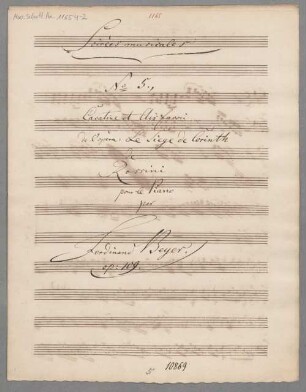 Mus. Schott Ha 11654-2
1165
Soirées musicales
No 5.
Cavatine et Air favori
de l'opéra: Le Siège de Corinth
de
Rossini
pour le Piano
par
Ferdinand Beyer.
op: 109.
5
10869